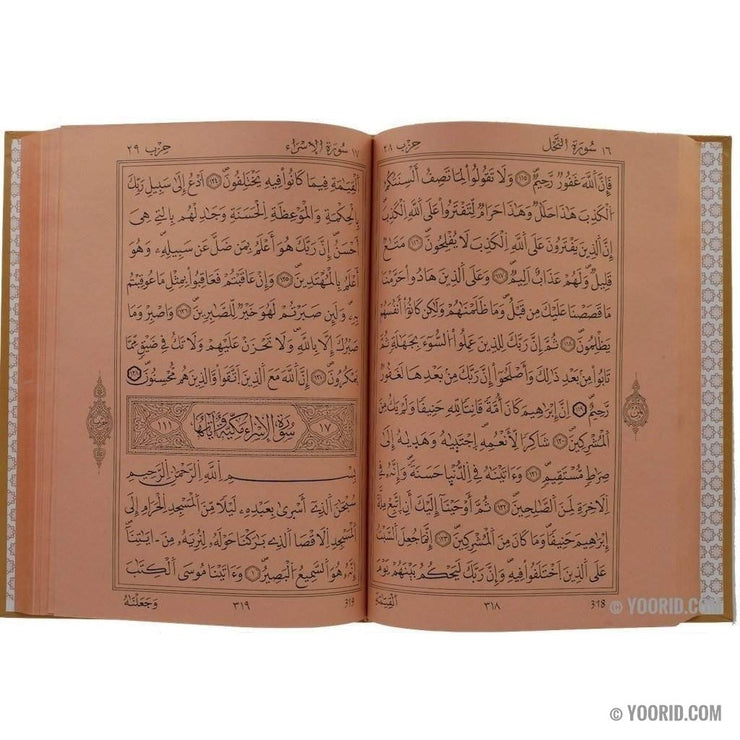 ١٦ سُورَةُ النَّحْلِ حِزْب ٢٨
فَإِنَّ اللَّهَ غَفُورٌ رَّحِيمٌ ١١٥ وَلَا تَقُولُوا لِمَا تَصِفُ أَلْسِنَتُكُمُ
الْكَذِبَ هَٰذَا حَلَٰلٌ وَهَٰذَا حَرَامٌ لِّتَفْتَرُوا عَلَى اللَّهِ الْكَذِبَ
إِنَّ الَّذِينَ يَفْتَرُونَ عَلَى اللَّهِ الْكَذِبَ لَا يُفْلِحُونَ ١١٦ مَتَٰعٌ
قَلِيلٌ وَلَهُمْ عَذَابٌ أَلِيمٌ ١١٧ وَعَلَى الَّذِينَ هَادُوا حَرَّمْنَا
مَا قَصَصْنَا عَلَيْكَ مِن قَبْلُ وَمَا ظَلَمْنَٰهُمْ وَلَٰكِن كَانُوا أَنفُسَهُمْ
يَظْلِمُونَ ١١٨ ثُمَّ إِنَّ رَبَّكَ لِلَّذِينَ عَمِلُوا السُّوءَ بِجَهَٰلَةٍ ثُمَّ
تَابُوا مِنۢ بَعْدِ ذَٰلِكَ وَأَصْلَحُوا إِنَّ رَبَّكَ مِنۢ بَعْدِهَا لَغَفُورٌ
رَّحِيمٌ ١١٩ إِنَّ إِبْرَٰهِيمَ كَانَ أُمَّةً قَانِتًا لِّلَّهِ حَنِيفًا وَلَمْ يَكُ مِنَ
الْمُشْرِكِينَ ١٢٠ شَاكِرًا لِّأَنْعُمِهِ اجْتَبَىٰهُ وَهَدَىٰهُ إِلَىٰ
صِرَٰطٍ مُّسْتَقِيمٍ ١٢١ وَءَاتَيْنَٰهُ فِي الدُّنْيَا حَسَنَةً وَإِنَّهُ فِي
الْآخِرَةِ لَمِنَ الصَّٰلِحِينَ ١٢٢ ثُمَّ أَوْحَيْنَا إِلَيْكَ أَنِ اتَّبِعْ مِلَّةَ
إِبْرَٰهِيمَ حَنِيفًا وَمَا كَانَ مِنَ الْمُشْرِكِينَ ١٢٣ إِنَّمَا جُعِلَ السَّبْتُ
عَلَى الَّذِينَ اخْتَلَفُوا فِيهِ وَإِنَّ رَبَّكَ لَيَحْكُمُ بَيْنَهُمْ يَوْمَ
318 ٣١٨ الْقِيَٰمَةِ
١٧ سُورَةُ الْإِسْرَاءِ حِزْب ٢٩
الْقِيَٰمَةِ فِيمَا كَانُوا فِيهِ يَخْتَلِفُونَ ١٢٤ ادْعُ إِلَىٰ سَبِيلِ رَبِّكَ
بِالْحِكْمَةِ وَالْمَوْعِظَةِ الْحَسَنَةِ وَجَٰدِلْهُم بِالَّتِي هِيَ
أَحْسَنُ إِنَّ رَبَّكَ هُوَ أَعْلَمُ بِمَن ضَلَّ عَن سَبِيلِهِ وَهُوَ
أَعْلَمُ بِالْمُهْتَدِينَ ١٢٥ وَإِنْ عَاقَبْتُمْ فَعَاقِبُوا بِمِثْلِ مَا عُوقِبْتُم
بِهِ وَلَئِن صَبَرْتُمْ لَهُوَ خَيْرٌ لِّلصَّٰبِرِينَ ١٢٦ وَاصْبِرْ وَمَا
صَبْرُكَ إِلَّا بِاللَّهِ وَلَا تَحْزَنْ عَلَيْهِمْ وَلَا تَكُ فِي ضَيْقٍ مِّمَّا
يَمْكُرُونَ ١٢٧ إِنَّ اللَّهَ مَعَ الَّذِينَ اتَّقَوا وَّالَّذِينَ هُم مُّحْسِنُونَ ١٢٨
١٧ سُورَةُ الْإِسْرَاءِ مَكِّيَّةٌ وَآيَاتُهَا ١١١
بِسْمِ اللَّهِ الرَّحْمَٰنِ الرَّحِيمِ
سُبْحَٰنَ الَّذِي أَسْرَىٰ بِعَبْدِهِ لَيْلًا مِّنَ الْمَسْجِدِ الْحَرَامِ إِلَى
الْمَسْجِدِ الْأَقْصَا الَّذِي بَٰرَكْنَا حَوْلَهُ لِنُرِيَهُ مِنْ ءَايَٰتِنَا
إِنَّهُ هُوَ السَّمِيعُ الْبَصِيرُ ١ وَءَاتَيْنَا مُوسَى الْكِتَٰبَ
319 ٣١٩ وَجَعَلْنَٰهُ
© YOORID.COM
© YOORID.COM